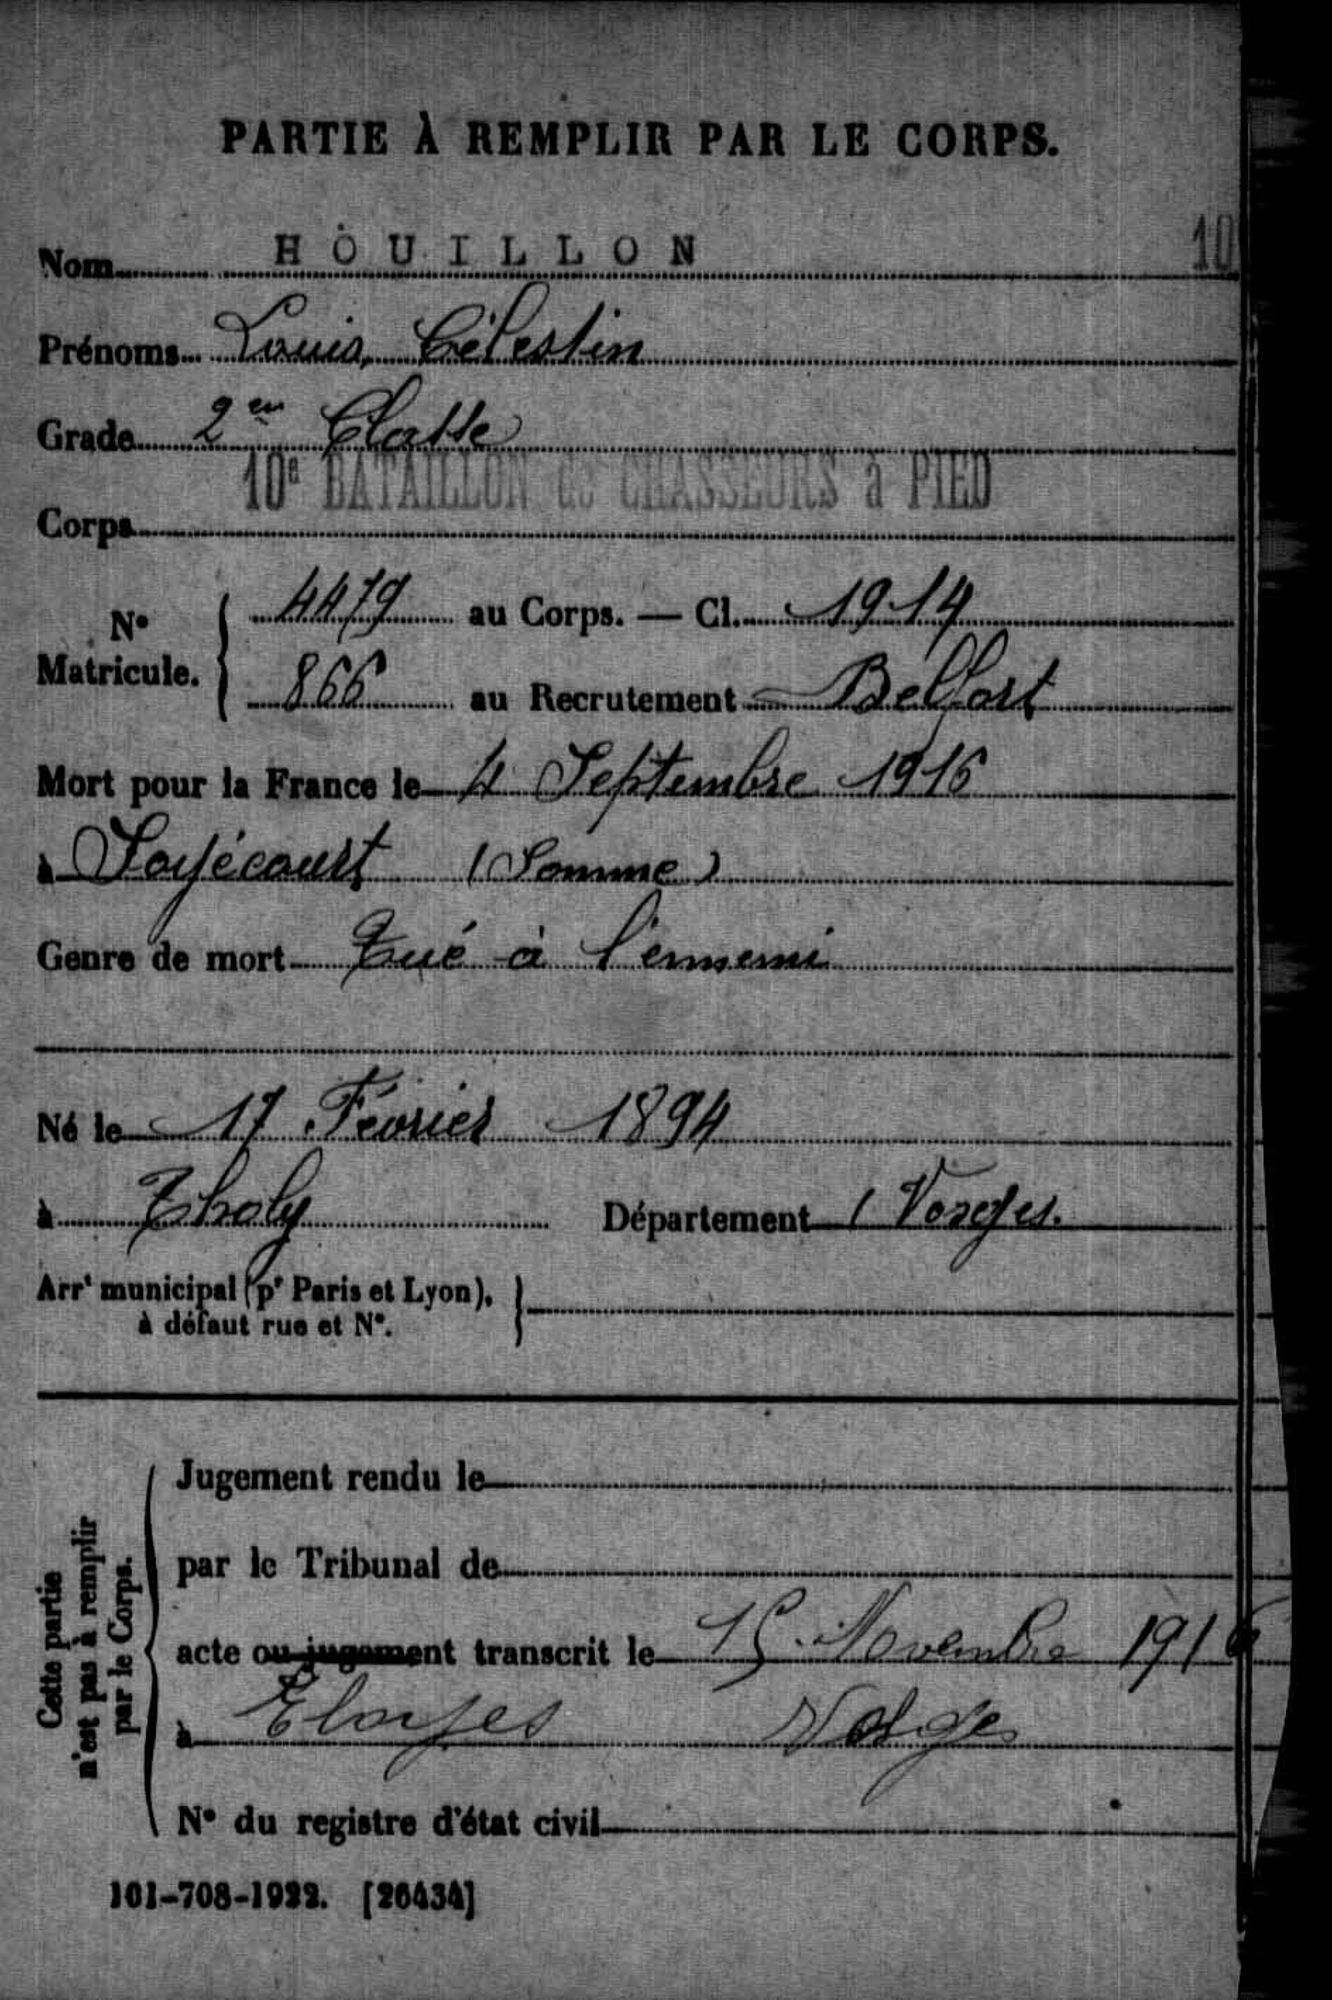 PARTIE À REMPLIR PAR LE CORPS.
10
Nom HOUILLON
Prénoms Louis, Célestin
Grade 2em Classe
10e BATAILLON de CHASSEURS à PIED
Corps
No Matricule. { 4479 au Corps. — Cl. 1914
866 au Recrutement Belfort
Mort pour la France le 4 Septembre 1916
à Soyécourt (Somme)
Genre de mort Tué à l'ennemi
Né le 17 Février 1894
à Tholy Département (Vosges.
Arrt municipal (pr Paris et Lyon), à défaut rue et No. }
Cette partie n'est pas à remplir par le Corps.
Jugement rendu le
par le Tribunal de
acte ou jugement transcrit le 15 Novembre 1916
à Eloyes Vosges
No du registre d'état civil
101-708-1922. [26434]